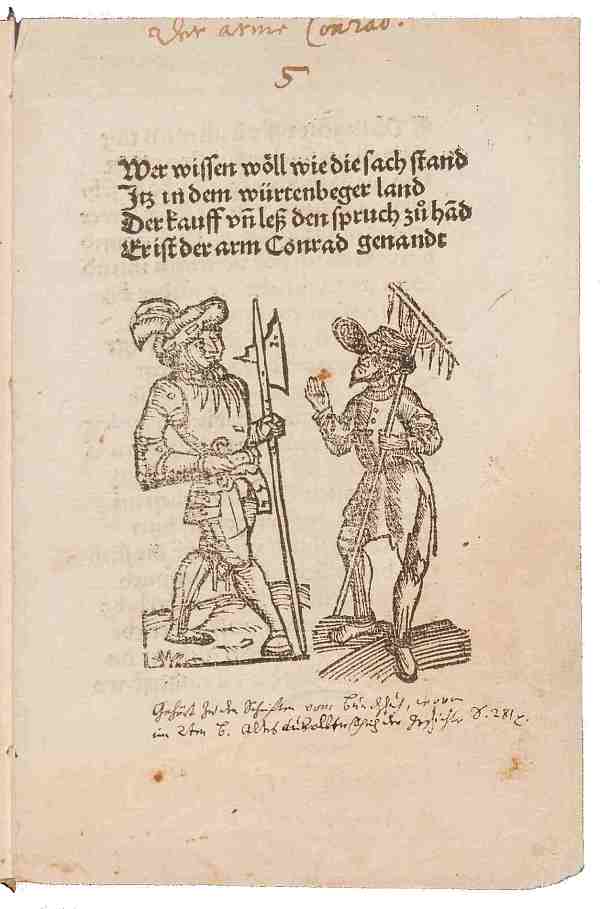 Der arme Conrad.
5
Wer wissen wöll wie die sach stand
Itz in dem würtenbeger land
Der kauff vñ leß den spruch zů hãd
Er ist der arm Conrad genandt
Gehört zu den Schriften vom
im 2ten B. der S. 281